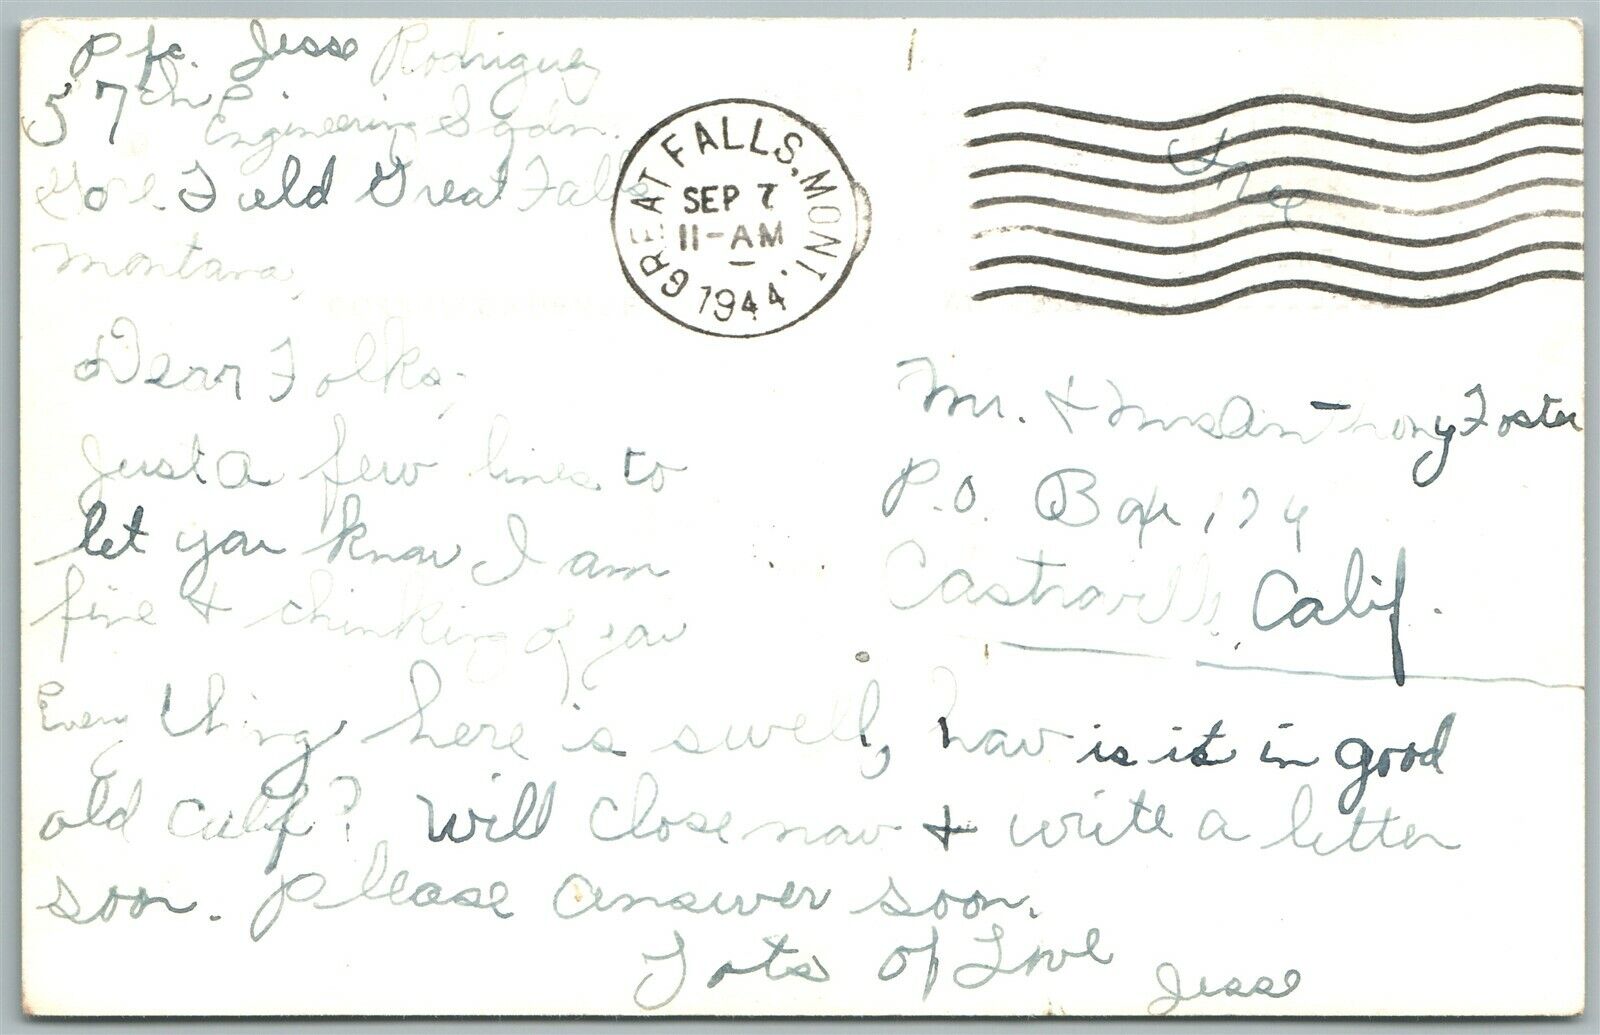 Pfc. Jesse Rodriguez
57th Engineering Sqdn.
Gore Field Great Falls
Montana,
GREAT FALLS, MONT.
SEP 7
11-AM
1944
Free
Dear Folks,
Just a few lines to
let you know I am
fine & thinking of you
Every thing here is swell, how is it in good
old Calif? Will close now & write a letter
soon. Please answer soon.
Lots of Love
Jesse
Mr. & Mrs Anthony Foster
P.O. Box 174
Castroville, Calif.